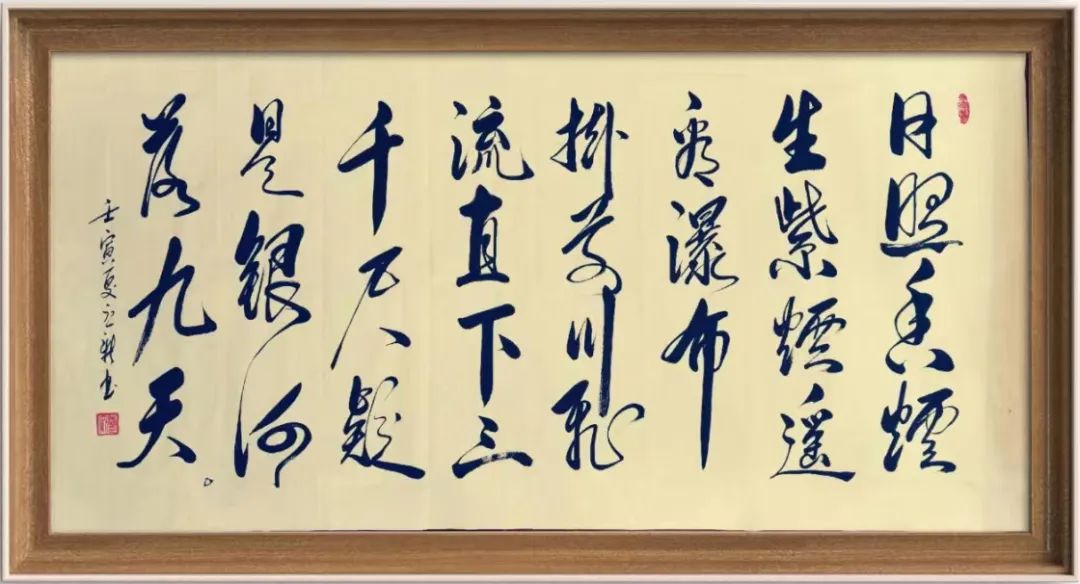 日照香煙
生紫煙遥
看瀑布
掛前川飛
流直下三
千尺疑
是銀河
落九天
壬寅夏书